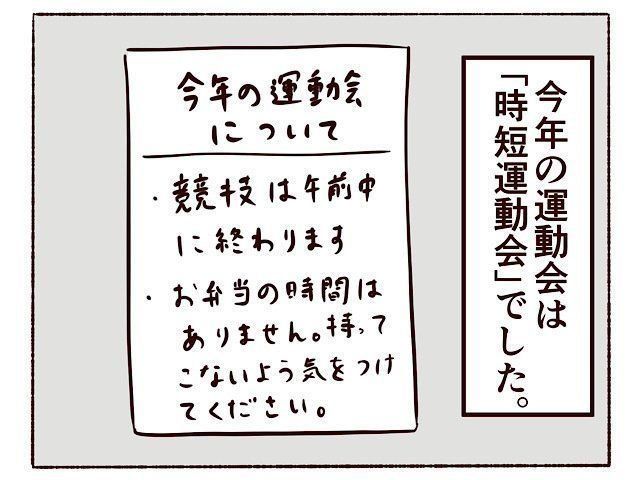 今年の運動会は
「時短運動会」でした。
今年の運動会
について
・競技は午前中
に終わります
・お弁当の時間は
ありません。持って
こないよう気をつけ
てください。